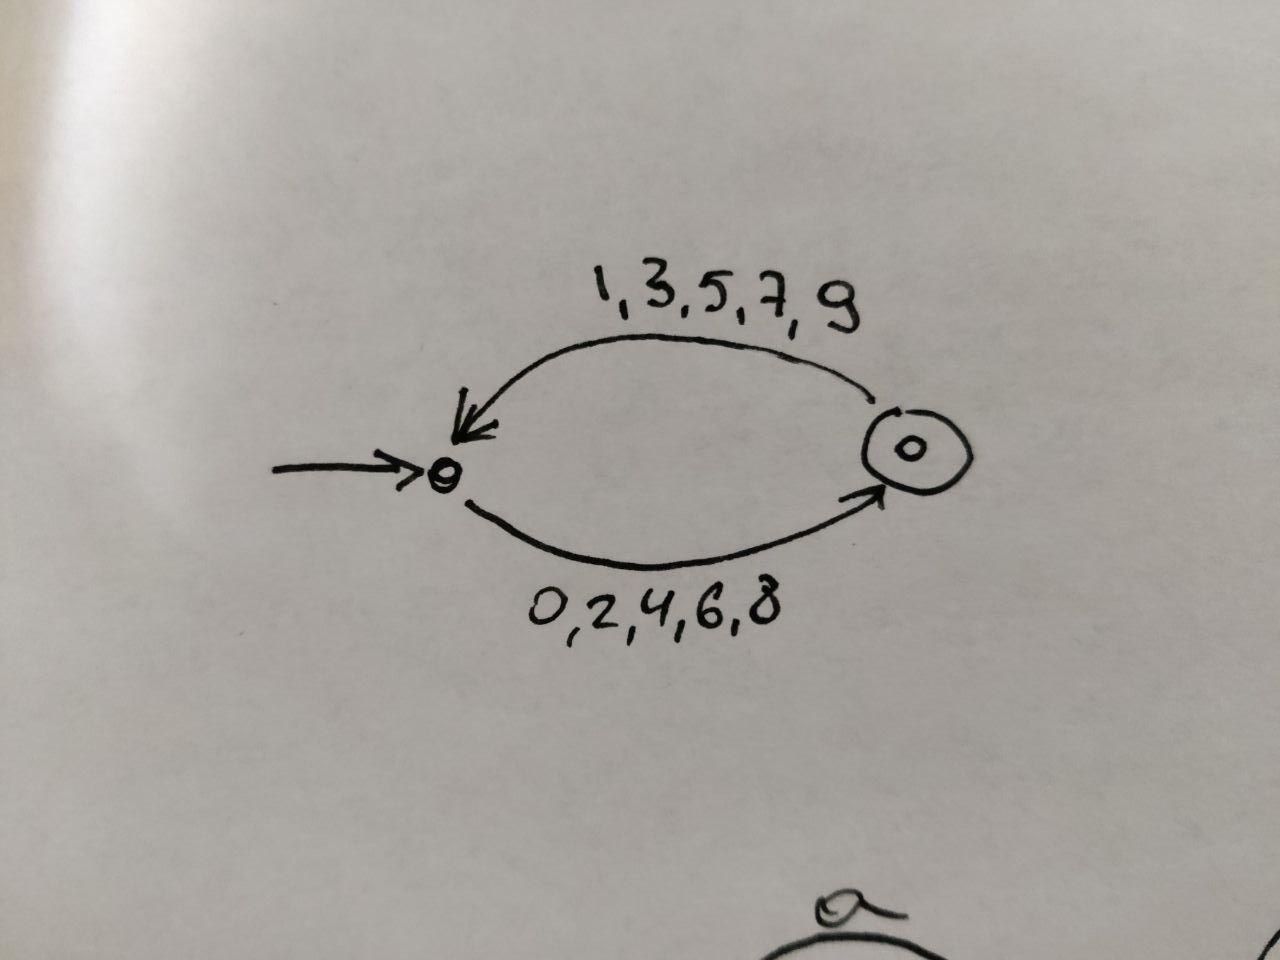 1,3,5,7,9
0,2,4,6,8
a